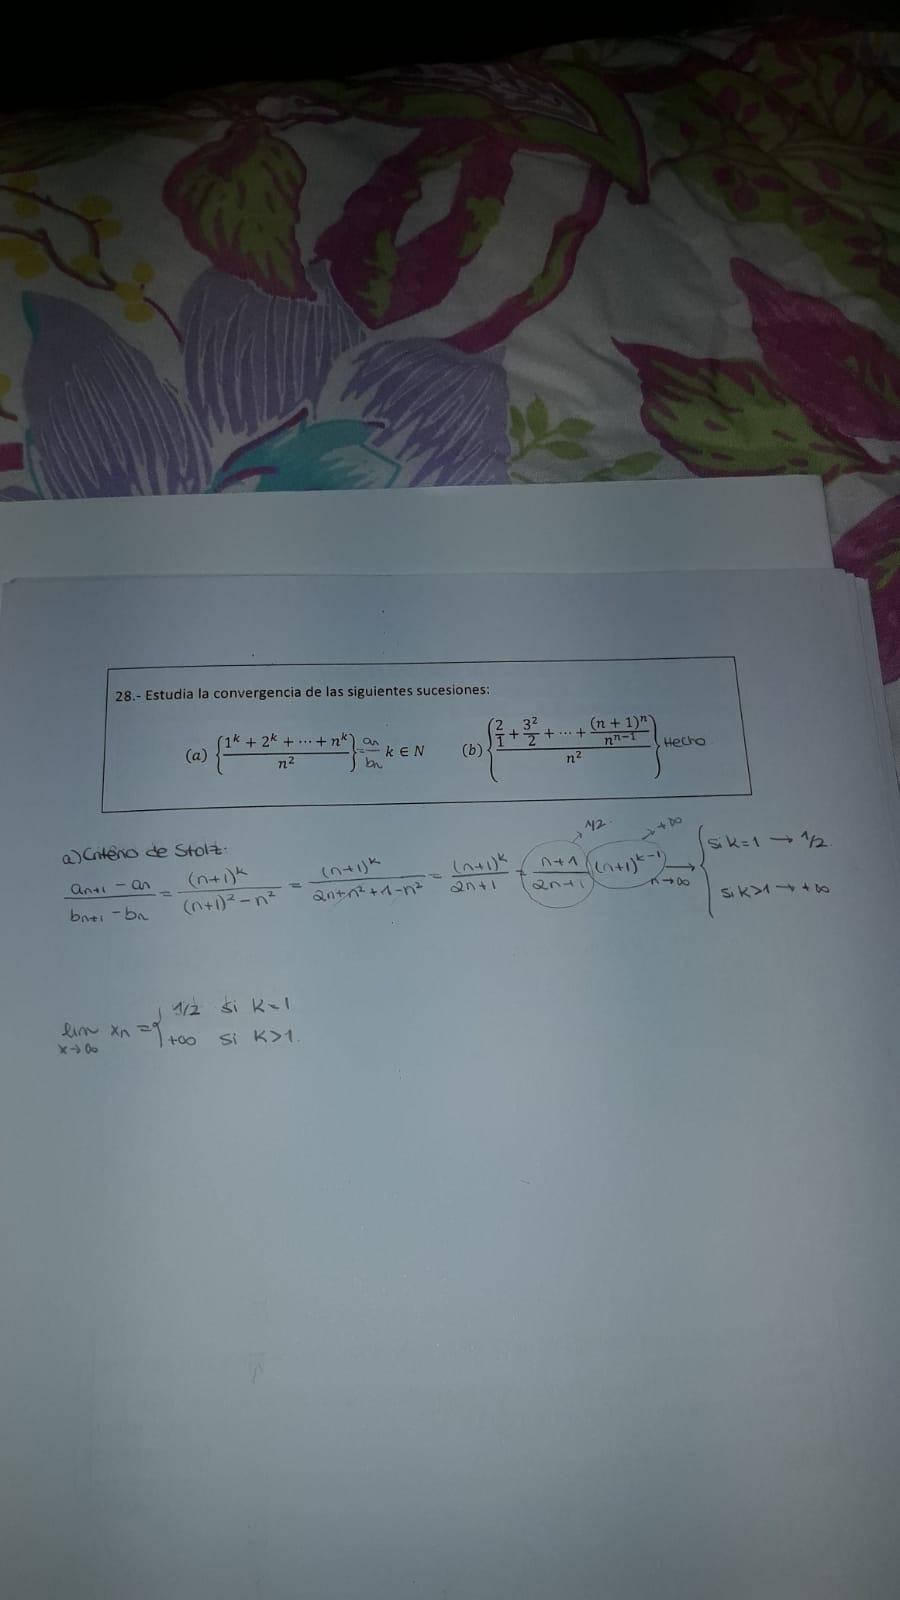 28.- Estudia la convergencia de las siguientes sucesiones:
(a) {(1^k + 2^k + ⋯ + n^k)/n^2} = an/bn k ∈ N (b) {(2/1 + 3^2/2 + ⋯ + (n + 1)^n/n^(n−1))/n^2} Hecho
a) Criterio de Stolz:
(an+1 - an)/(bn+1 - bn) = (n+1)^k/((n+1)^2 - n^2) = (n+1)^k/(2n+n^2+1-n^2) = (n+1)^k/(2n+1) = (n+1)/(2n+1) (n+1)^(k-1) →
→ 1/2. → +∞
n→∞
{ si k=1 → 1/2.
si k>1 → +∞
lim x→∞ xn = { 1/2 si k=1
+∞ si k>1.